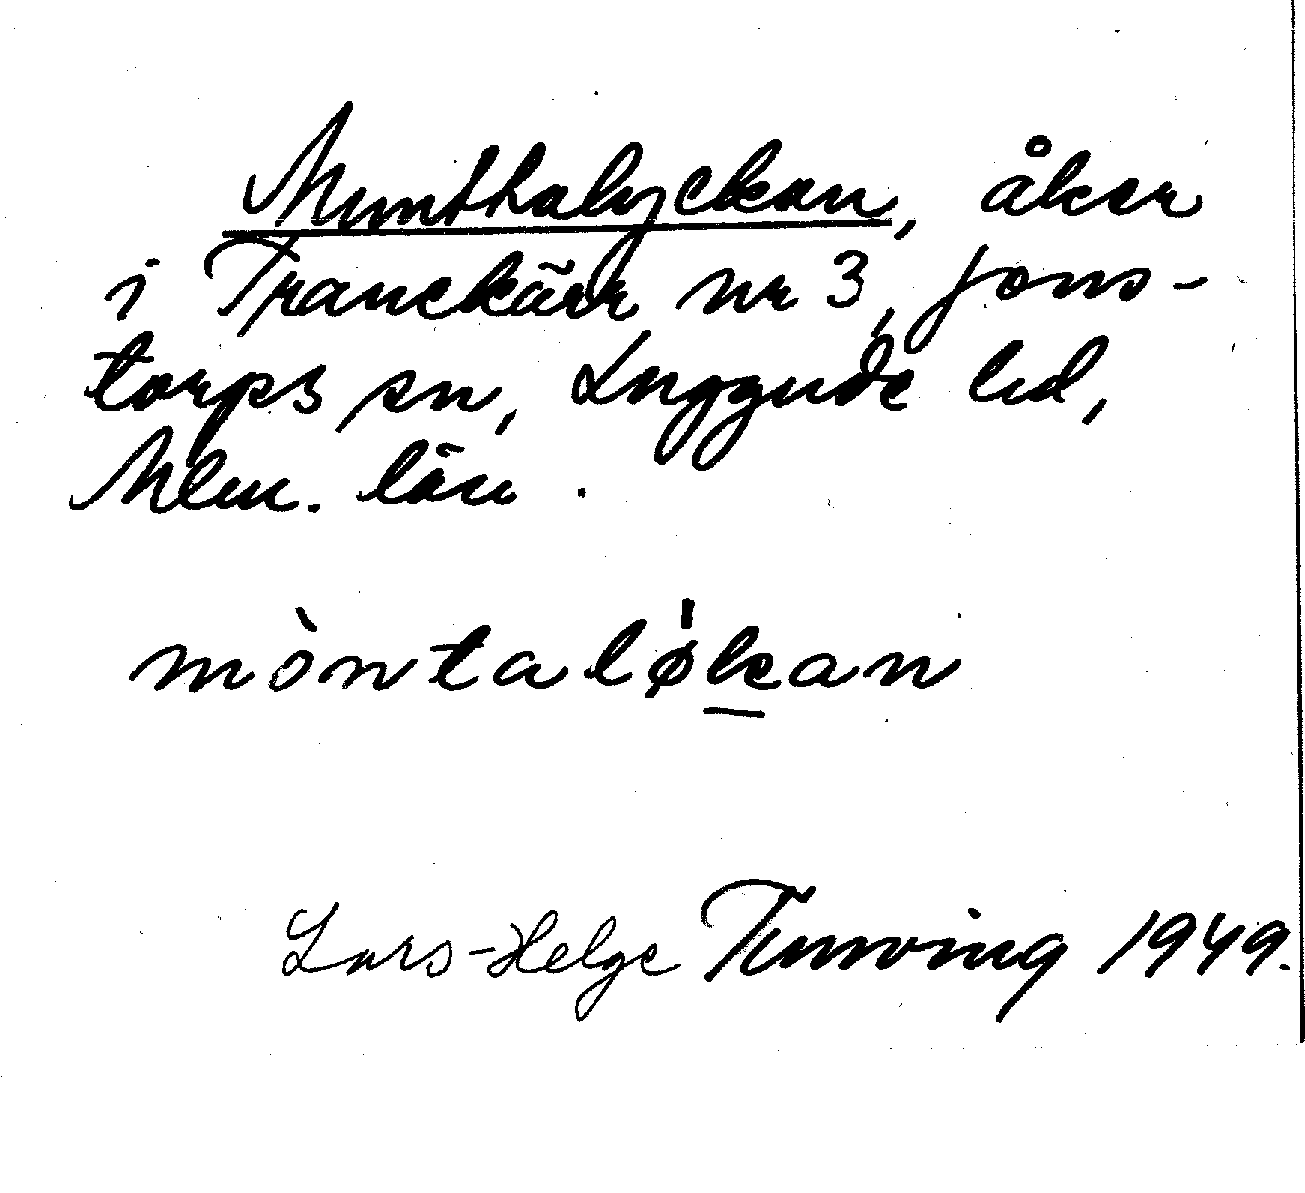 Munthalyckan, åker
i Tranekärr nr 3, Jons-
torps sn, Luggude hd,
Mlm. län.
mòntalø̍k̲an
Lars-Helge Tunving 1949.